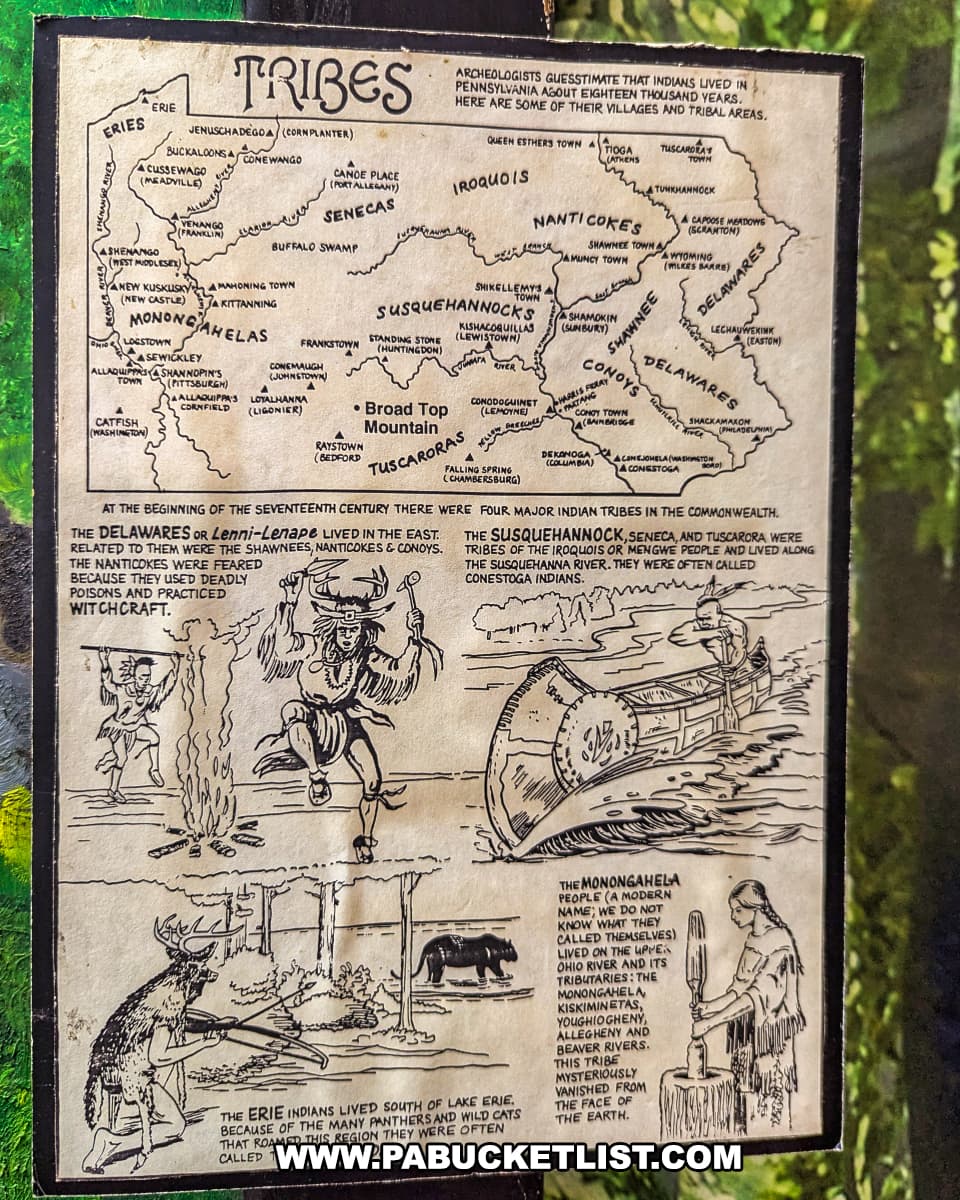 TRIBES
ARCHEOLOGISTS GUESSTIMATE THAT INDIANS LIVED IN
PENNSYLVANIA ABOUT EIGHTEEN THOUSAND YEARS.
HERE ARE SOME OF THEIR VILLAGES AND TRIBAL AREAS.
ERIE
ERIES
JENUSCHADEGO (CORNPLANTER)
BUCKALOONS
CONEWANGO
CUSSEWAGO
(MEADVILLE)
SHENANGO RIVER
ALLEGHENY RIVER
CANOE PLACE
(PORT ALLEGANY)
IROQUOIS
QUEEN ESTHERS TOWN
TIOGA
(ATHENS
TUSCARORA'S
TOWN
TUNKHANNOCK
VENANGO
(FRANKLIN)
CLARION RIVER
SENECAS
NANTICOKES
CAPOOSE MEADOWS
(SCRANTON)
BUFFALO SWAMP
SUSQUEHANNA RIVER
WEST BRANCH
SHAWNEE TOWN
MUNCY TOWN
WYOMING
(WILKES BARRE)
SHENANGO
(WEST MIDDLESEX)
NEW KUSKUSKY
(NEW CASTLE)
MAHONING TOWN
KITTANNING
BEAVER RIVER
SHIKELLEMY'S
TOWN
DELAWARES
MONONGAHELAS
SUSQUEHANNOCKS
SHAMOKIN
(SUNBURY)
SHAWNEE
LECHAUWEKINK
(EASTON)
OHIO
LOGSTOWN
SEWICKLEY
FRANKSTOWN
STANDING STONE
(HUNTINGDON)
KISHACOQUILLAS
(LEWISTOWN)
JUNIATA RIVER
ALLAQUIPPA'S
TOWN
SHANNOPIN'S
(PITTSBURGH)
CONEMAUGH
(JOHNSTOWN)
CONOYS
DELAWARES
ALLAQUIPPA'S
CORNFIELD
LOYALHANNA
(LIGONIER)
• Broad Top
Mountain
CONODOGUINET
(LEMOYNE)
HARRIS FERRY
PAXTANG
CONOY TOWN
(BAINBRIDGE
SCHUYLKILL RIVER
SHACKAMAXON
(PHILADELPHIA)
CATFISH
(WASHINGTON)
RAYSTOWN
(BEDFORD
TUSCARORAS
YELLOW BREECHES
FALLING SPRING
(CHAMBERSBURG)
DEKONOGA
(COLUMBIA)
CONEJOHELA (WASHINGTON
BORO)
CONESTOGA
AT THE BEGINNING OF THE SEVENTEENTH CENTURY THERE WERE FOUR MAJOR INDIAN TRIBES IN THE COMMONWEALTH.
THE DELAWARES OR Lenni-Lenape LIVED IN THE EAST.
RELATED TO THEM WERE THE SHAWNEES, NANTICOKES & CONOYS.
THE NANTICOKES WERE FEARED
BECAUSE THEY USED DEADLY
POISONS AND PRACTICED
WITCHCRAFT.
THE SUSQUEHANNOCK, SENECA, AND TUSCARORA WERE
TRIBES OF THE IROQUOIS OR MENGWE PEOPLE AND LIVED ALONG
THE SUSQUEHANNA RIVER. THEY WERE OFTEN CALLED
CONESTOGA INDIANS.
THE MONONGAHELA
PEOPLE (A MODERN
NAME; WE DO NOT
KNOW WHAT THEY
CALLED THEMSELVES)
LIVED ON THE UPPER
OHIO RIVER AND ITS
TRIBUTARIES: THE
MONONGAHELA,
KISKIMINETAS,
YOUGHIOGHENY,
ALLEGHENY AND
BEAVER RIVERS.
THIS TRIBE
MYSTERIOUSLY
VANISHED FROM
THE FACE OF
THE EARTH.
THE ERIE INDIANS LIVED SOUTH OF LAKE ERIE.
BECAUSE OF THE MANY PANTHERS AND WILD CATS
THAT ROAMED THIS REGION THEY WERE OFTEN
CALLED
WWW.PABUCKETLIST.COM